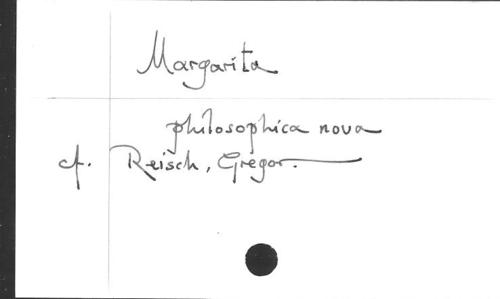 Margarita
philosophica nova
cf. Reisch, Gregor.